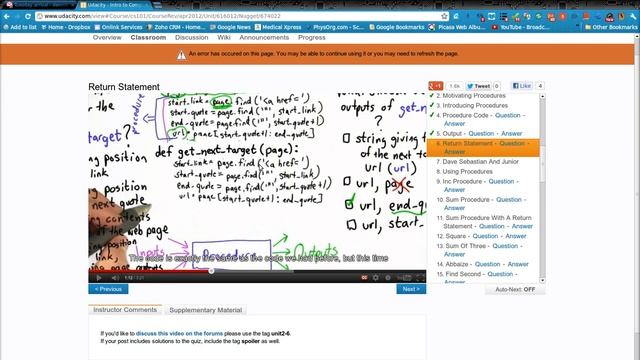 www.udacity.com/view#Course/cs101/CourseRev/apr2012/Unit/616012/Nugget/674022
Overview Classroom Discussion Wiki Announcements Progress
An error has occured on this page. You may be able to continue using it or you may need to refresh the page.
Return Statement
+1 1.6k Tweet 0 Like 4
procedure
start_link = page.find('<a href=')
start_quote = page.find('"', start_link)
end_quote = page.find('"', start_quote+1)
url = page[start_quote+1:end_quote]
target?
def get_next_target (page):
start_link = page.find('<a href=')
start_quote = page.find('"', start_link)
end_quote = page.find('"', start_quote+1)
url = page[start_quote+1:end_quote]
ing position
next quote
ng contents
the web page
ing position
link,
Inputs
Outputs
outputs of get_n
string giving
of the next
url (url)
url, page
url, end_q
url, start_
The code is exactly the same as the code we had before, but this time
1:12 / 3:21
2. Motivating Procedures
3. Introducing Procedures
4. Procedure Code - Question - Answer
5. Output - Question - Answer
6. Return Statement - Question - Answer
7. Dave Sebastian And Junior
8. Using Procedures
9. Inc Procedure - Question - Answer
10. Sum Procedure - Question - Answer
11. Sum Procedure With A Return Statement - Question - Answer
12. Square - Question - Answer
13. Sum Of Three - Question - Answer
14. Abbaize - Question - Answer
15. Find Second - Question - Answer
« Previous
Next »
Auto-Next: OFF
Instructor Comments Supplementary Material
If you'd like to discuss this video on the forums please use the tag unit2-6.
If your post includes solutions to the quiz, include the tag spoiler as well.